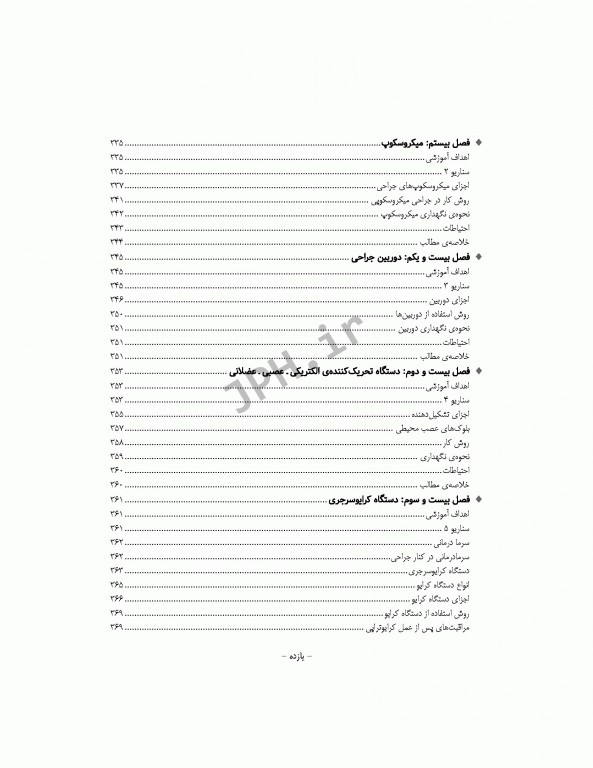 ◆ فصل بیستم: میکروسکوپ ........ ۳۳۵
اهداف آموزشی ........ ۳۳۵
سناریو ۲ ........ ۳۳۵
اجزای میکروسکوپ‌های جراحی ........ ۳۳۷
روش کار در جراحی میکروسکوپی ........ ۳۴۱
نحوه‌ی نگهداری میکروسکوپ ........ ۳۴۲
احتیاطات ........ ۳۴۳
خلاصه‌ی مطالب ........ ۳۴۴
◆ فصل بیست و یکم: دوربین جراحی ........ ۳۴۵
اهداف آموزشی ........ ۳۴۵
سناریو ۳ ........ ۳۴۵
اجزای دوربین ........ ۳۴۶
روش استفاده از دوربین‌ها ........ ۳۵۰
نحوه‌ی نگهداری دوربین ........ ۳۵۱
احتیاطات ........ ۳۵۱
خلاصه‌ی مطالب ........ ۳۵۱
◆ فصل بیست و دوم: دستگاه تحریک‌کننده‌ی الکتریکی ـ عصبی ـ عضلانی ........ ۳۵۳
اهداف آموزشی ........ ۳۵۳
سناریو ۴ ........ ۳۵۳
اجزای تشکیل‌دهنده ........ ۳۵۵
بلوک‌های عصب محیطی ........ ۳۵۷
روش کار ........ ۳۵۸
نحوه‌ی نگهداری ........ ۳۵۹
احتیاطات ........ ۳۶۰
خلاصه‌ی مطالب ........ ۳۶۰
◆ فصل بیست و سوم: دستگاه کرایوسرجری ........ ۳۶۱
اهداف آموزشی ........ ۳۶۱
سناریو ۵ ........ ۳۶۱
سرما درمانی ........ ۳۶۲
سرمادرمانی در کنار جراحی ........ ۳۶۲
دستگاه کرایوسرجری ........ ۳۶۳
انواع دستگاه کرایو ........ ۳۶۵
اجزای دستگاه کرایو ........ ۳۶۶
روش استفاده از دستگاه کرایو ........ ۳۶۹
مراقبت‌های پس از عمل کرایوتراپی ........ ۳۶۹
– یازده –
JPH.ir